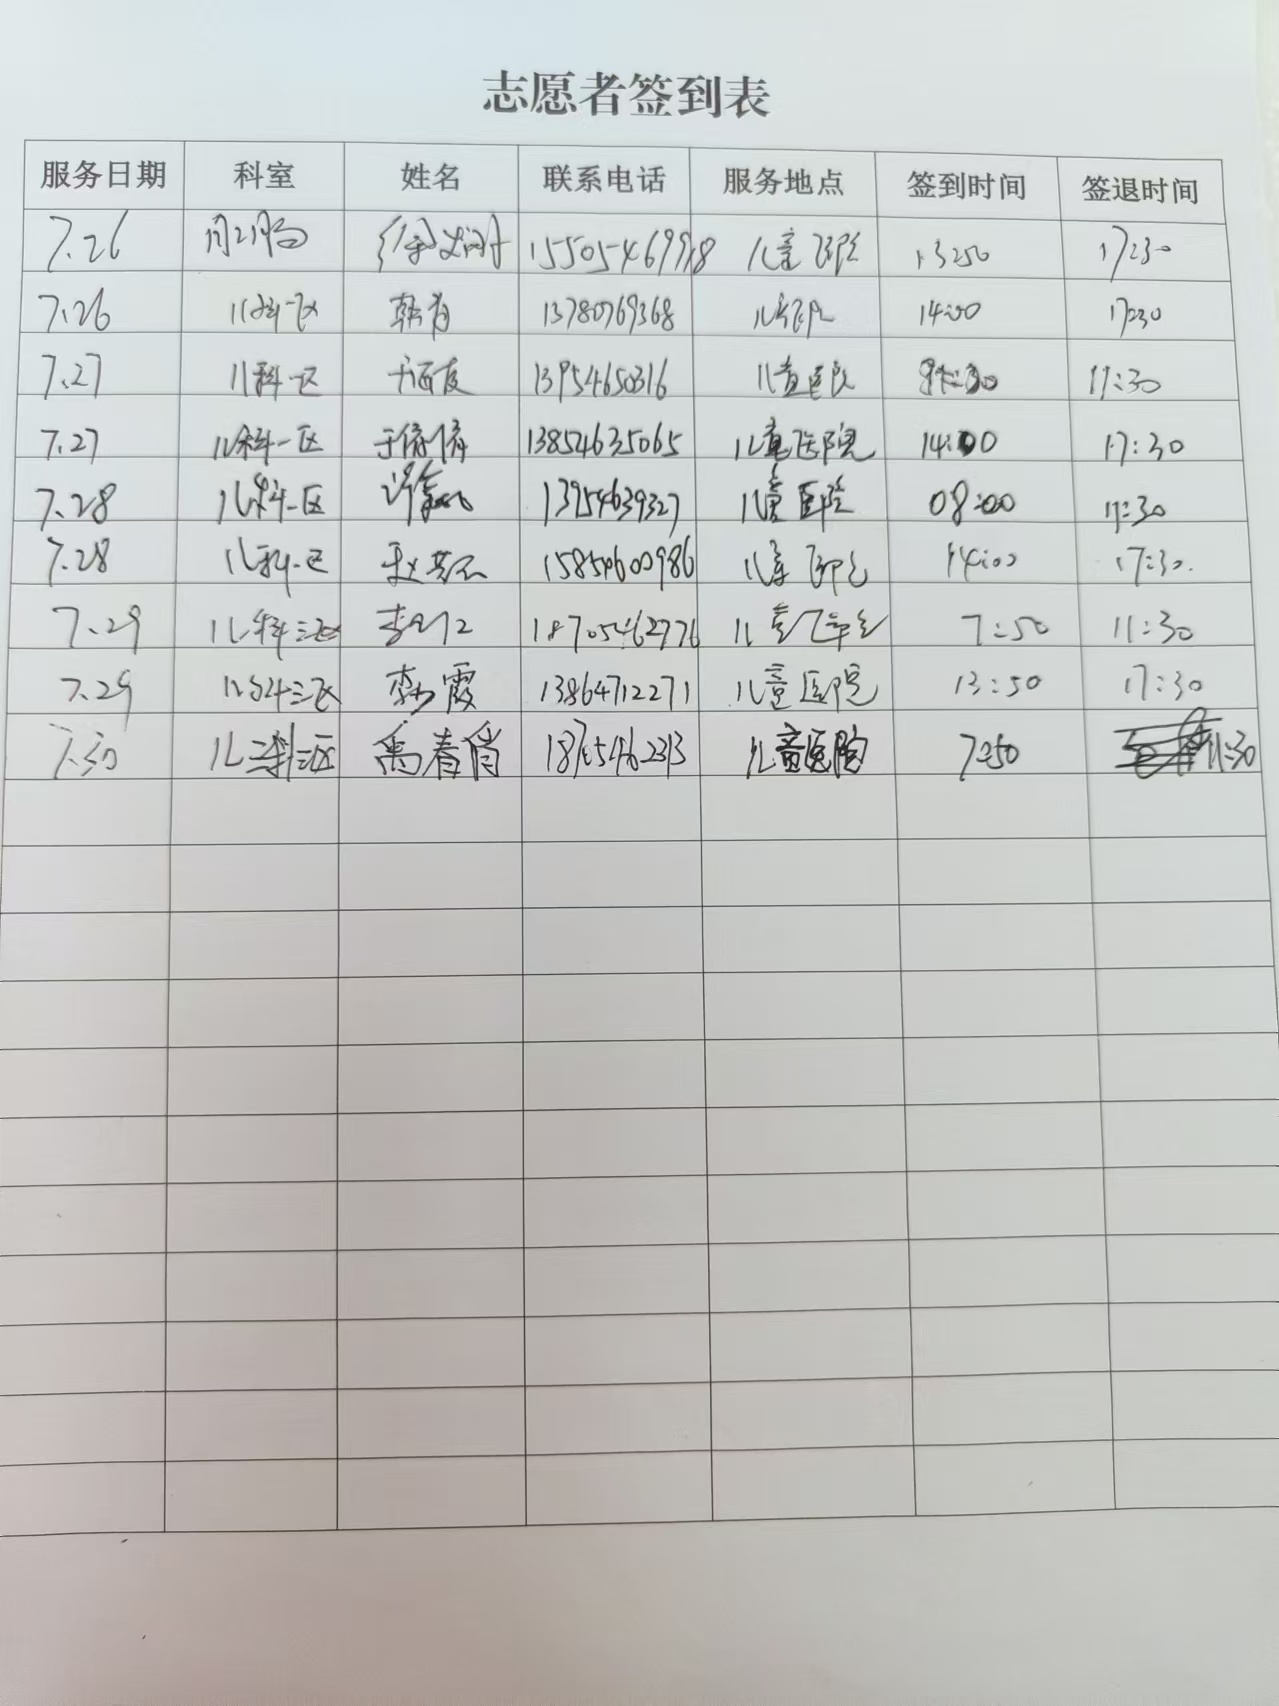 志愿者签到表
服务日期 科室 姓名 联系电话 服务地点 签到时间 签退时间
7.26 15505469998 儿童医院 13:50 17:30
7.26 儿科一区 韩青 13780769368 儿童医院 14:00 17:30
7.27 儿科一区 13954650316 儿童医院 11:30
7.27 儿科一区 于倩倩 13854635065 儿童医院 14:00 17:30
7.28 儿科一区 13954639327 儿童医院 08:00 11:30
7.28 儿科一区 15854600986 儿童医院 14:00 17:30.
7.29 儿科三区 18705462776 儿童医院 7:50 11:30
7.29 儿科三区 霞 13864712271 儿童医院 13:50 17:30
7.30 儿科三区 禹春俏 儿童医院 7:50 11:30